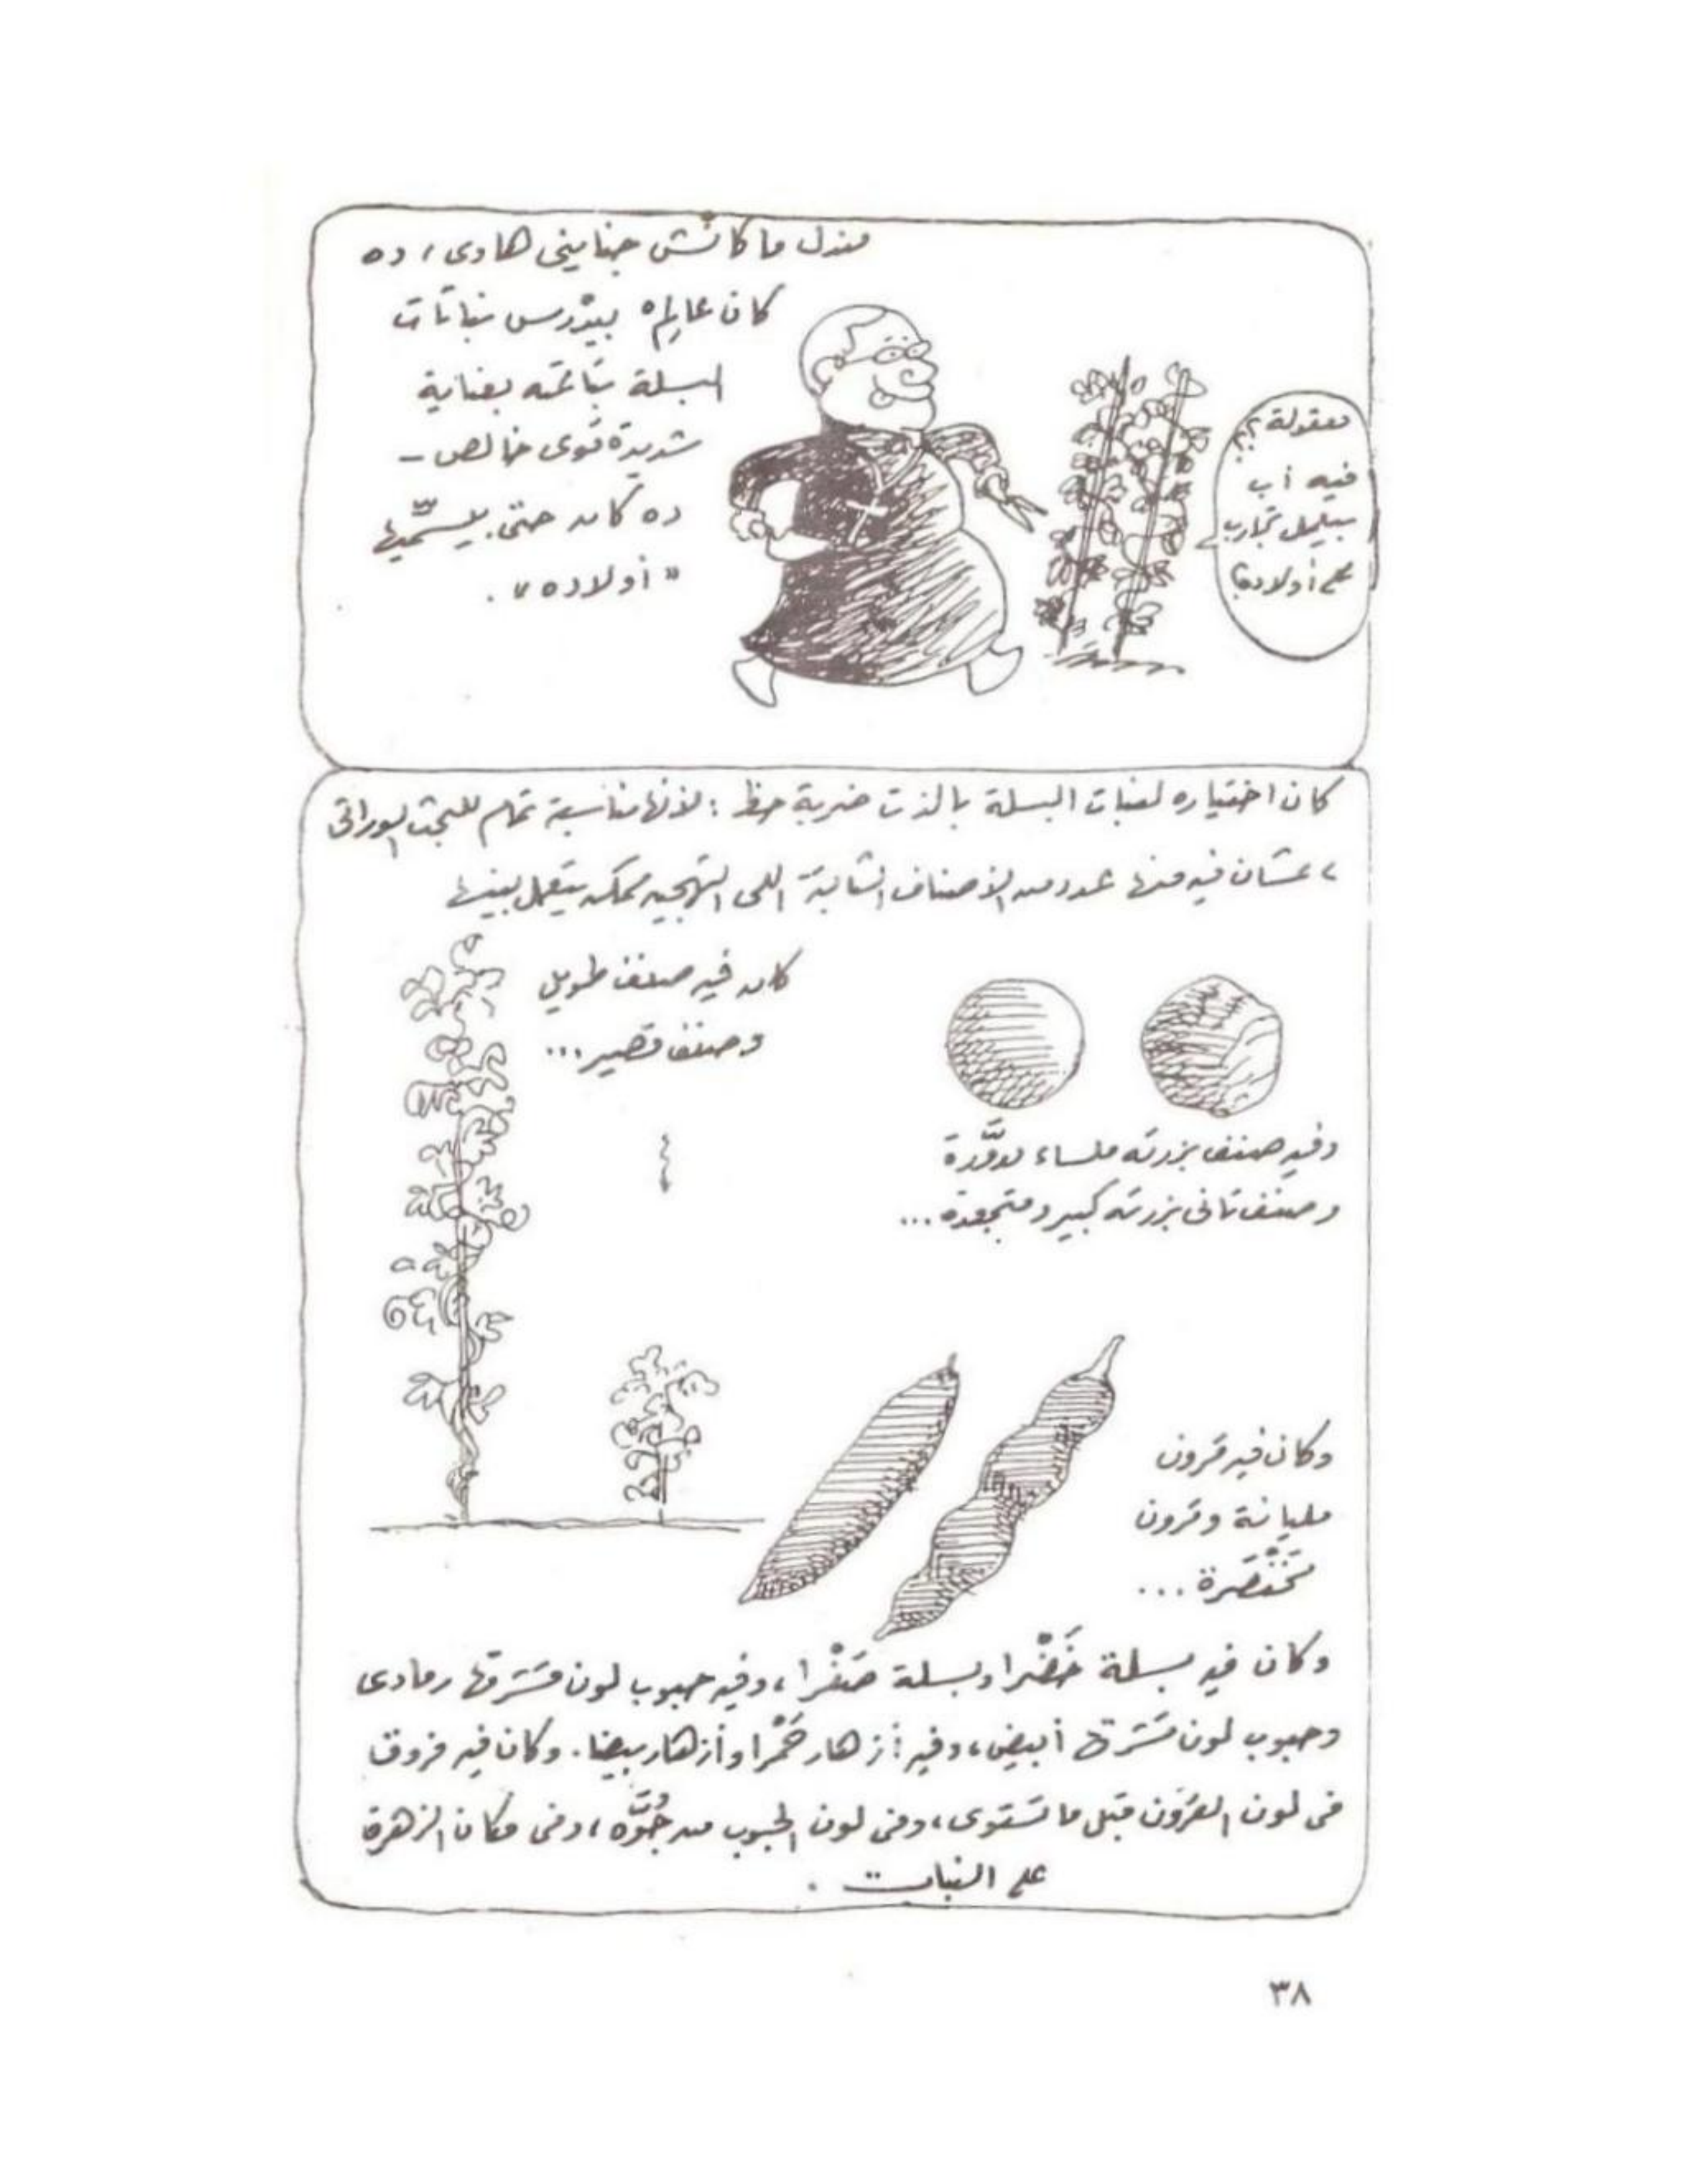 مندل ما كانش جنايني هاوى، ده
كان عالِم بيدْرس نباتات
البسلة بتاعته بعناية
شديدة قوى خالص –
ده كان حتى بيسَمّيها
"أولاده".
معقولة؟؟
فيه أب
بيعمل تجارب
على أولاده؟
كان اختياره لنبات البسلة بالذت ضربة حظ : لأنها مناسبة تمام للبحث الوراثى
، عشان فيه منها عدد من الأصناف الثابتة اللى التهجين ممكن يتعمل بينها
كان فيه صنف طويل
وصنف قصير...
وفيه صنف بزرته ملساء مدوَّرة
وصنف تانى بزرته كبير ومتجعدة...
وكان فيه قرون
مليانة وقرون
مخَنْصَرة ...
وكان فيه بسلة خَضْرا وبسلة صَفْرا، وفيه حبوب لون قشرتها رمادى
وحبوب لون قشرتها أبيض، وفيه أزهار حَمْرا وأزهار بيضا. وكان فيه فروق
فى لون القرون قبل ما تستوى، وفى لون الحبوب من جُوَّه، وفى مكان الزهرة
على النبات .
٣٨